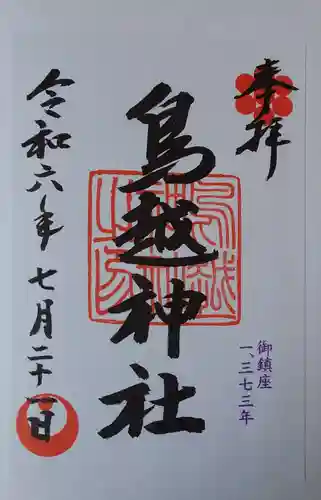 奉拝
御鎮座
一、三七三年
鳥越神社
令和六年七月二十一日